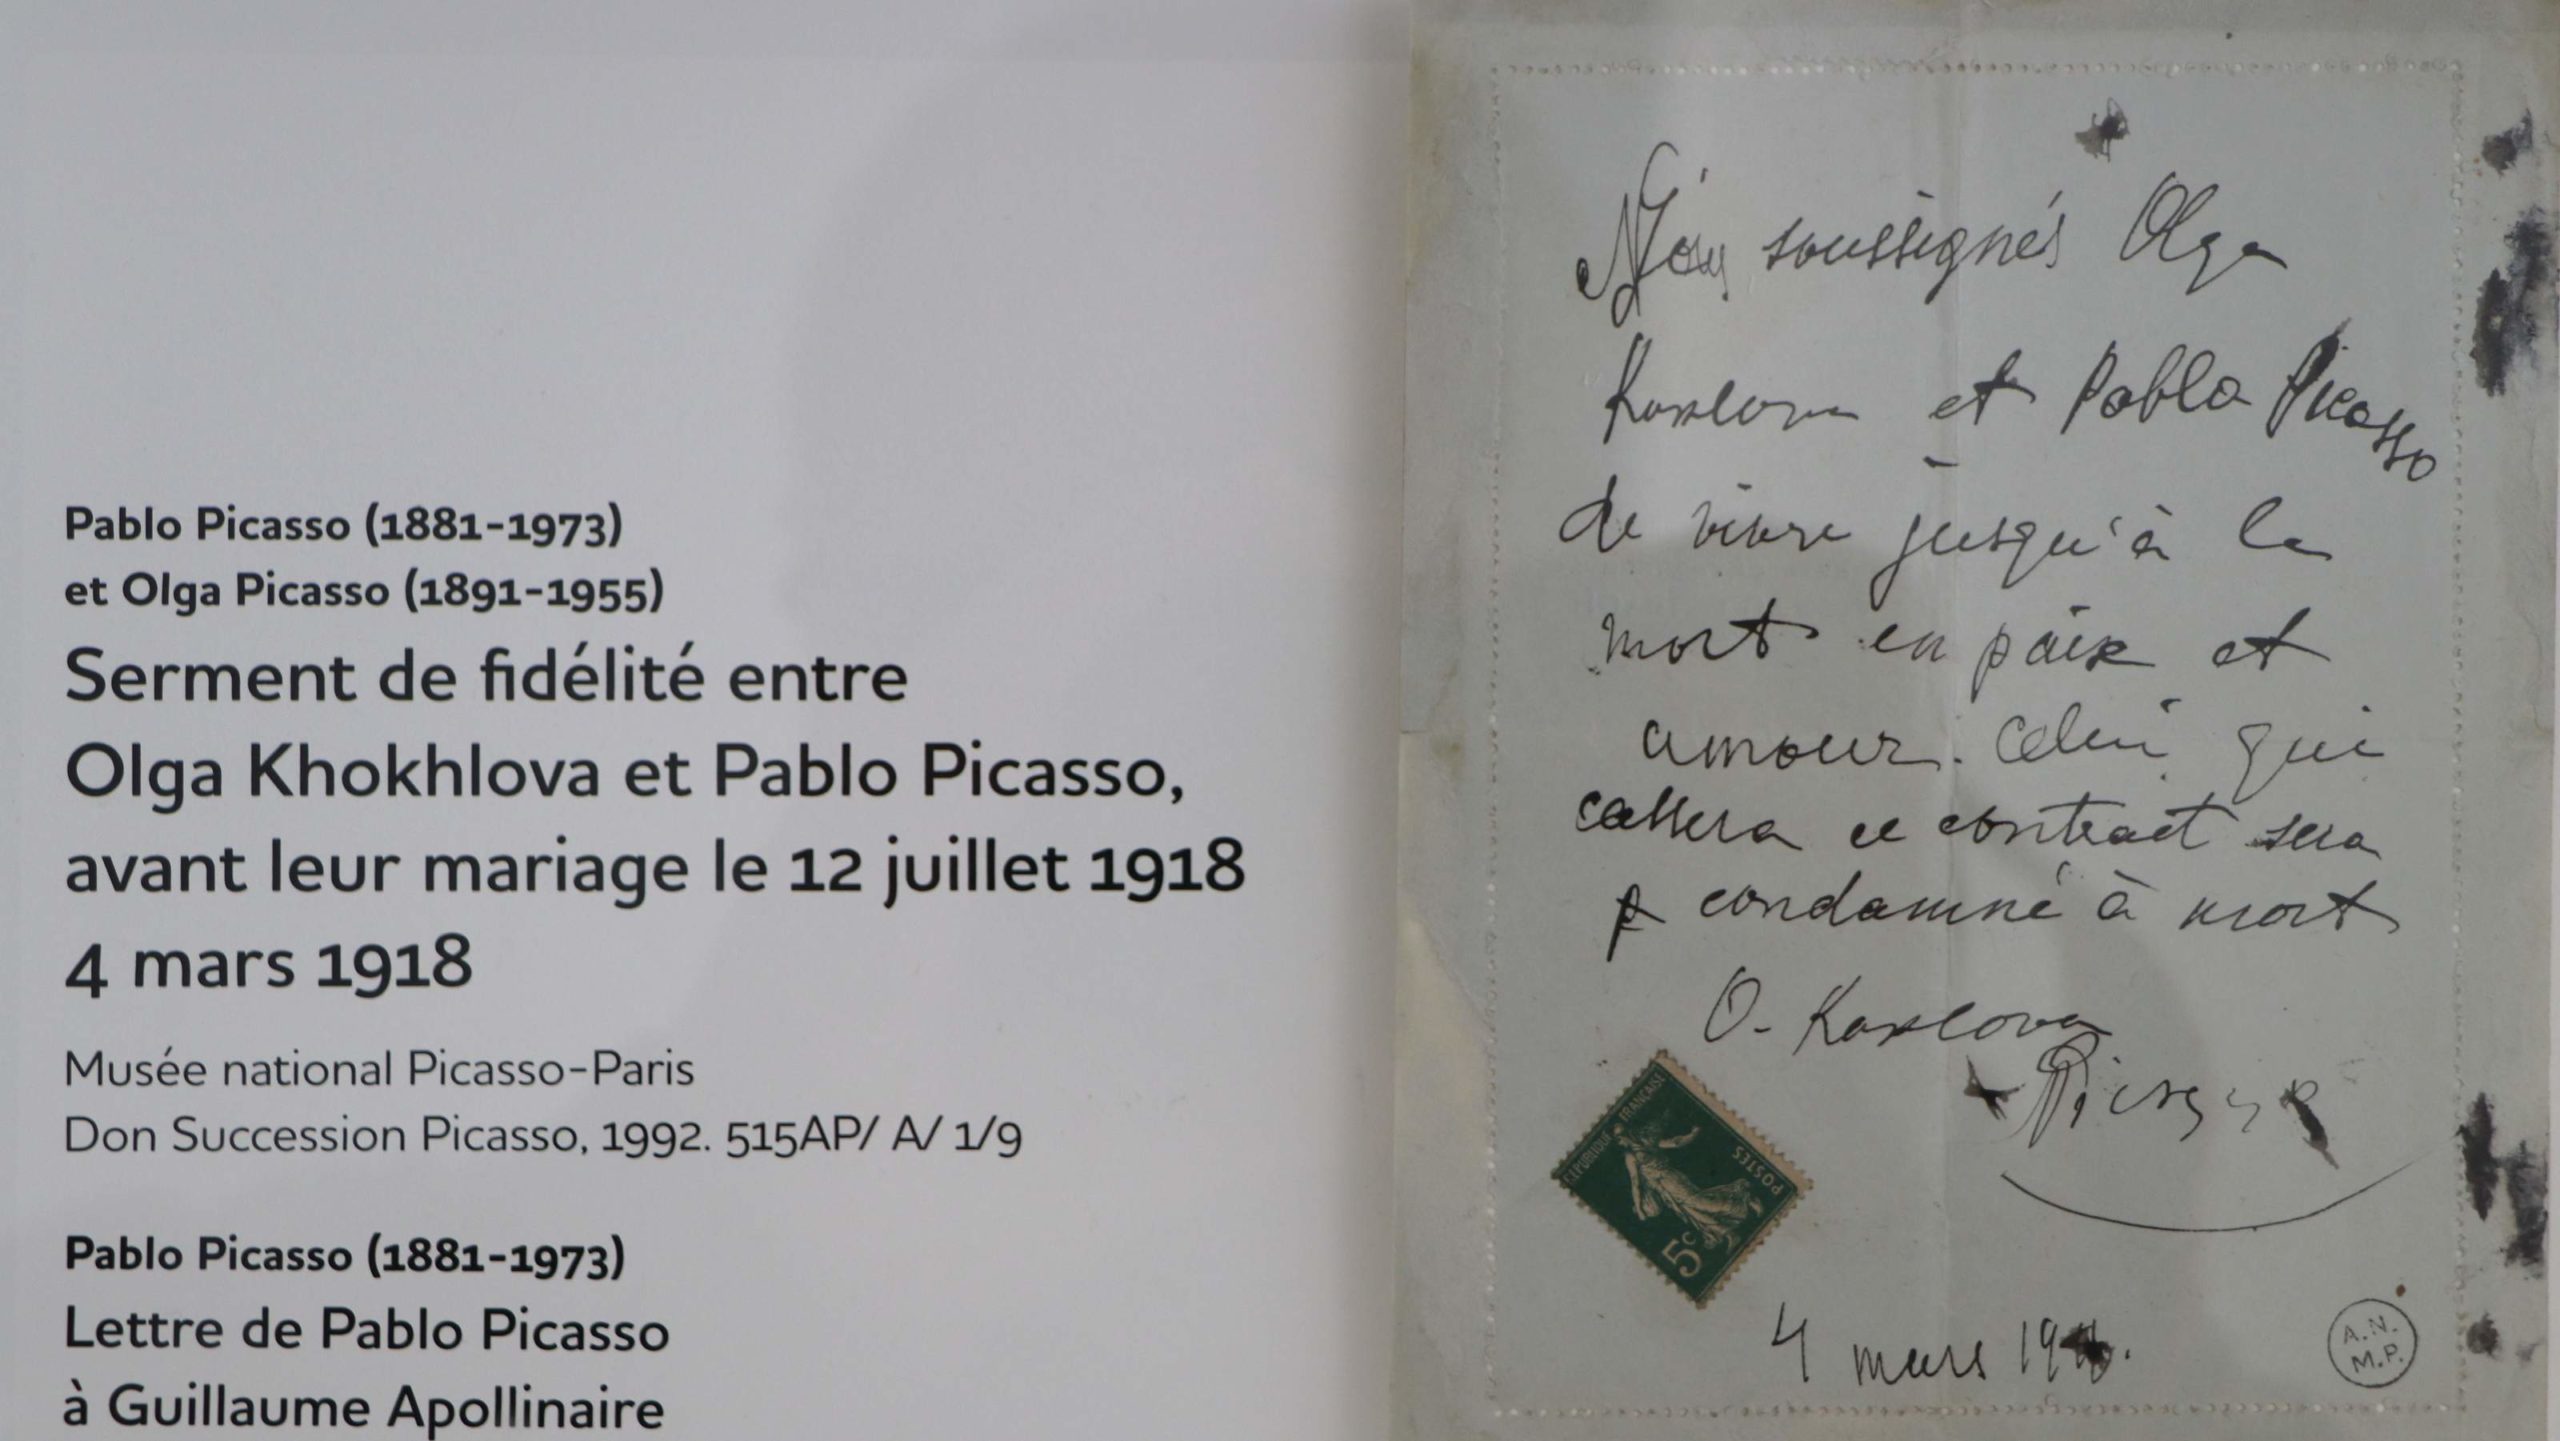 Pablo Picasso (1881-1973)
et Olga Picasso (1891-1955)
Serment de fidélité entre
Olga Khokhlova et Pablo Picasso,
avant leur mariage le 12 juillet 1918
4 mars 1918
Musée national Picasso-Paris
Don Succession Picasso, 1992. 515AP/ A/ 1/9
Pablo Picasso (1881-1973)
Lettre de Pablo Picasso
à Guillaume Apollinaire
soussignés Olga
Koxlova et Pablo Picasso
de vivre jusqu'à la
mort en paix et
amour. Celui qui
cassera ce contract sera
condamné à mort
O. Koxlova
Picasso
RÉPUBLIQUE FRANÇAISE
POSTES
5c
4 mars
A.N.
M.P.